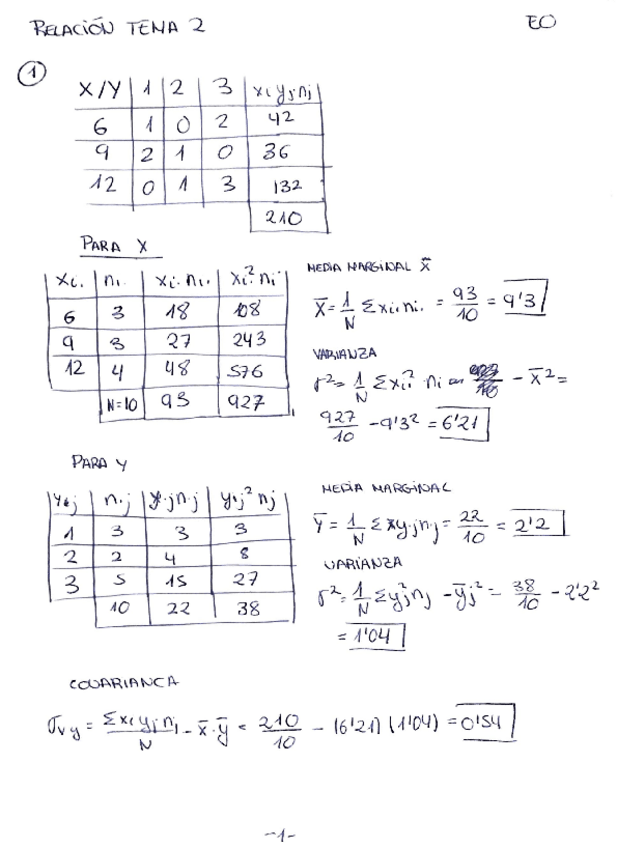 RELACIÓN TEMA 2 EO
1
X/Y 1 2 3 xi yj nj
6 1 0 2 42
9 2 1 0 36
12 0 1 3 132
210
PARA X
xi. ni. xi. ni. xi.² ni
6 3 18 108
9 3 27 243
12 4 48 576
N=10 93 927
MEDIA MARGINAL X̄
X̄ = 1/N Σ xi. ni. = 93/10 = 9'3
VARIANZA
σ² = 1/N Σ xi.² ni - X̄² =
927/10 - 9'3² = 6'21
PARA Y
y.j n.j y.j n.j y.j² nj
1 3 3 3
2 2 4 8
3 5 15 27
10 22 38
MEDIA MARGINAL
Ȳ = 1/N Σ y.j n.j = 22/10 = 2'2
VARIANZA
σ² = 1/N Σ yj² nj - ȳj² = 38/10 - 2'2²
= 1'04
COVARIANCA
σxy = Σ xi yj nj / N - x̄ · ȳ = 210/10 - (6'21) (1'04) = 0'54
-1-